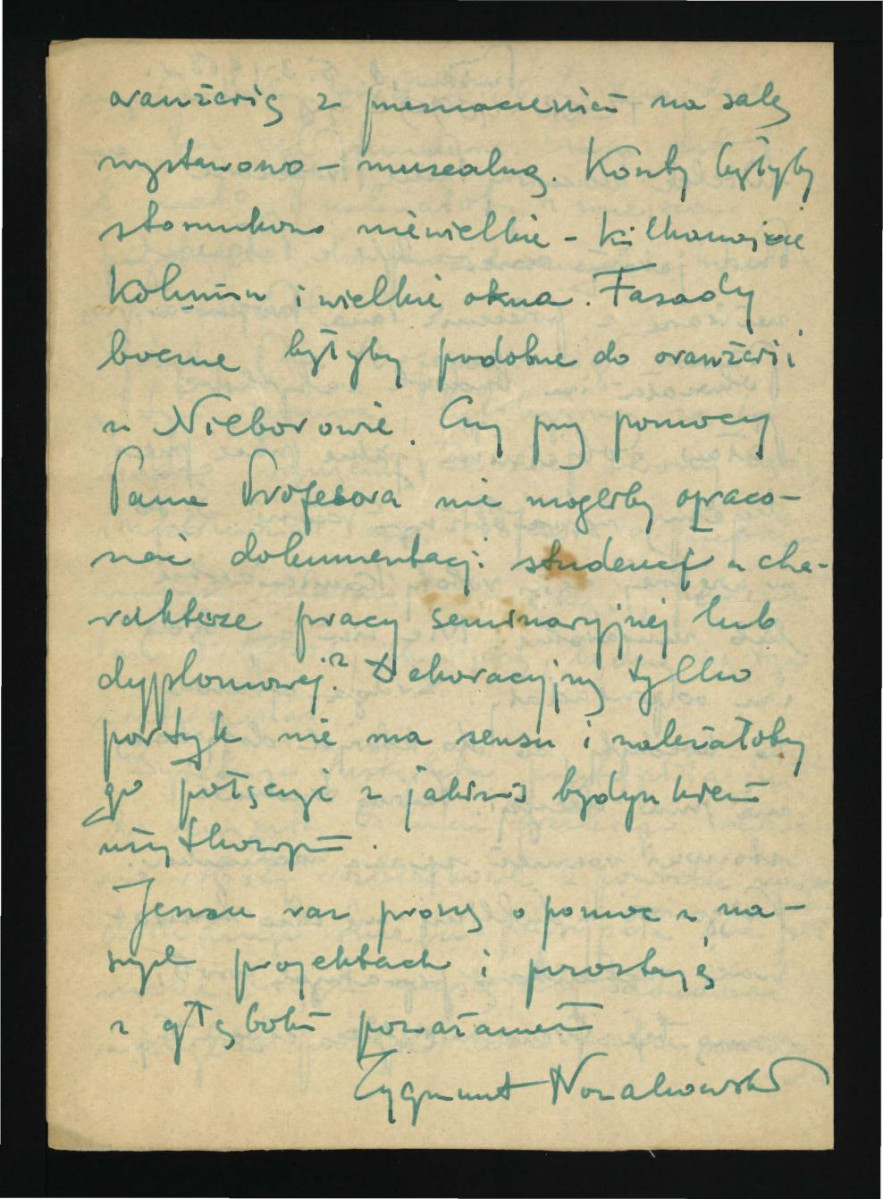 oranżerię z przeznaczeniem na salę
wystawowo – musealną. Koszty byłyby
stosunkowo niewielkie – kilkanaście
kolumn i wielkie okna. Fasady
boczne byłyby podobne do oranżerii
w Nieborowie. Czy przy pomocy
Pana Profesora nie mogliby opraco–
wać dokumentacji studenci w cha–
rakterze pracy seminaryjnej lub
dyplomowej? Dekoracyjny tylko
portyk nie ma sensu i należałoby
go połączyć z jakimś budynkiem
użytkowym.
Jeszcze raz proszę o pomoc w na–
szych projektach i pozostaję
z głębokim poważaniem
Zygmunt Nowakowski